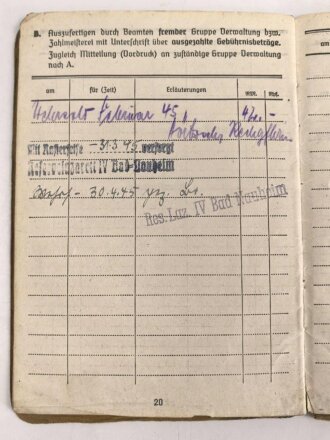 B. Auszufertigen durch Beamten fremder Gruppe Verwaltung bzw.
Zahlmeisterei mit Unterschrift über ausgezahlte Gebührnisbeträge.
Zugleich Mitteilung (Vordruck) an zuständige Gruppe Verwaltung
nach A.
am für (Zeit) Erläuterungen RM. RM.
Wehrsold Februar 45
31.3.45 versorgt
Res. Lazarett IV Bad-Nauheim
Wehrs. - 30.4.45 gez.
Res. Laz. IV Bad Nauheim
20